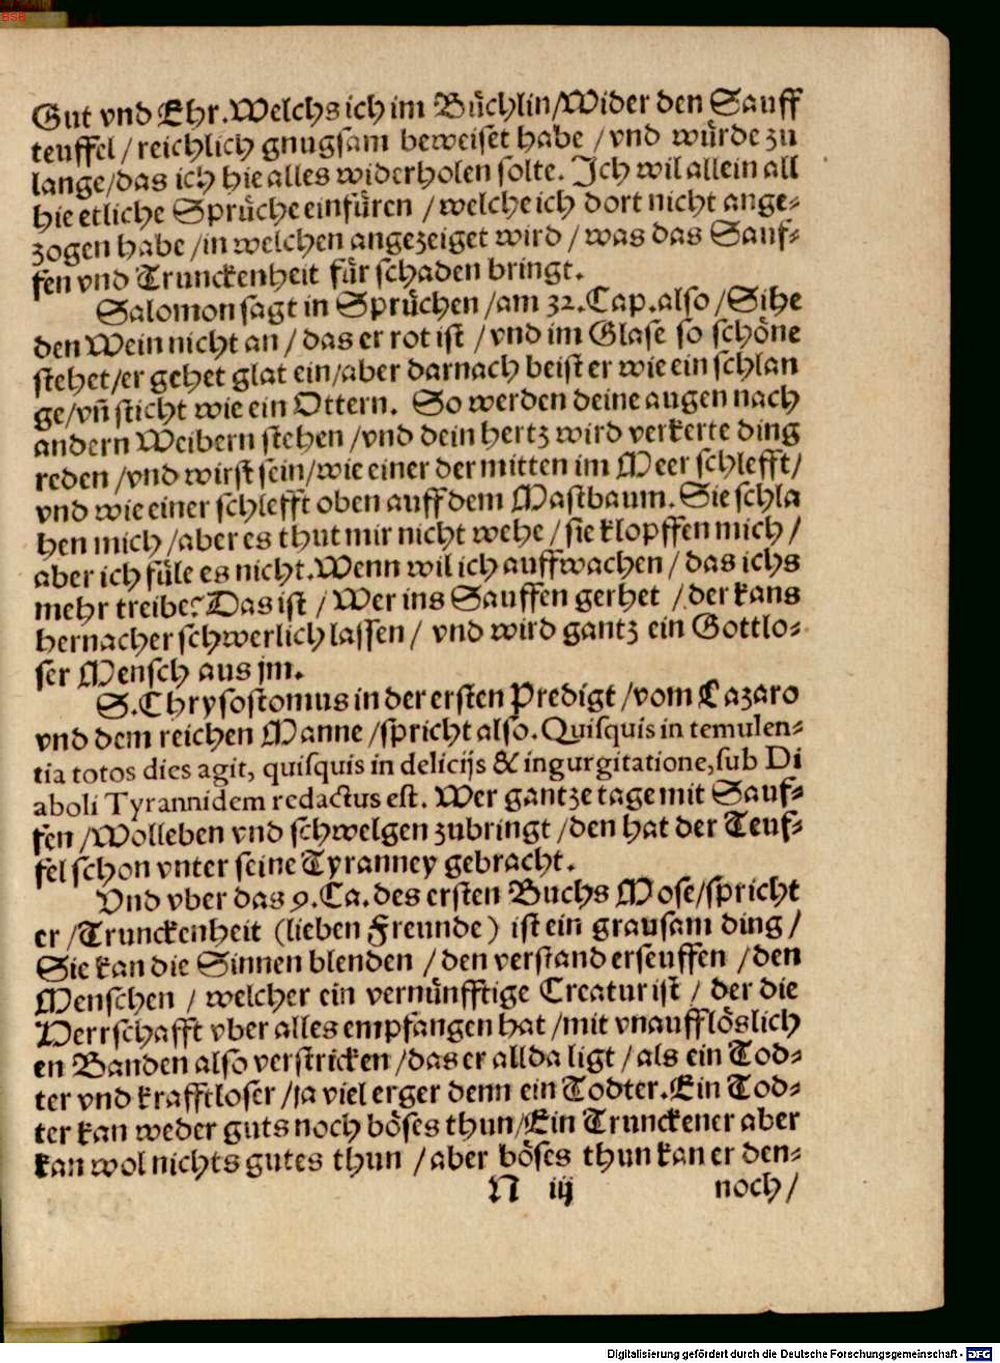 BSB
Gut vnd Ehr. Welchs ich im Bůchlin/Wider den Sauff
teuffel/reichlich gnugsam beweiset habe/vnd wůrde zu
lange/das ich hie alles widerholen solte. Ich wil allein all
hie etliche Sprůche einfůren/welche ich dort nicht ange⸗
zogen habe/in welchen angezeiget wird/was das Sauf⸗
fen vnd Trunckenheit fůr schaden bringt.
Salomon sagt in Sprůchen/am 32. Cap. also/Sihe
den Wein nicht an/das er rot ist/vnd im Glase so schöne
stehet/er gehet glat ein/aber darnach beist er wie ein schlan
ge/vñ sticht wie ein Ottern. So werden deine augen nach
andern Weibern stehen/vnd dein hertz wird verkerte ding
reden/vnd wirst sein/wie einer der mitten im Meer schlefft/
vnd wie einer schlefft oben auff dem Mastbaum. Sie schla
hen mich/aber es thut mir nicht wehe/sie klopffen mich/
aber ich fůle es nicht. Wenn wil ich auffwachen/das ichs
mehr treibe? Das ist/Wer ins Sauffen gerhet/der kans
hernacher schwerlich lassen/vnd wird gantz ein Gottlo⸗
ser Mensch aus jm.
S. Chrysostomus in der ersten Predigt/vom Lazaro
vnd dem reichen Manne/spricht also. Quisquis in temulen⸗
tia totos dies agit, quisquis in delicijs & ingurgitatione, sub Di
aboli Tyrannidem redactus est. Wer gantze tage mit Sauf⸗
fen/Wolleben vnd schwelgen zubringt/den hat der Teuf⸗
fel schon vnter seine Tyranney gebracht.
Vnd vber das 9. Ca. des ersten Buchs Mose/spricht
er/Trunckenheit (lieben Freunde) ist ein grausam ding/
Sie kan die Sinnen blenden/den verstand erseuffen/den
Menschen/welcher ein vernůnfftige Creatur ist/der die
Herrschafft vber alles empfangen hat/mit vnaufflöslich
en Banden also verstricken/das er allda ligt/als ein Tod⸗
ter vnd krafftloser/ja viel erger denn ein Todter. Ein Tod⸗
ter kan weder guts noch böses thun/Ein Trunckener aber
kan wol nichts gutes thun/aber böses thun kan er den⸗
N iij noch/
Digitalisierung gefördert durch die Deutsche Forschungsgemeinschaft - DFG